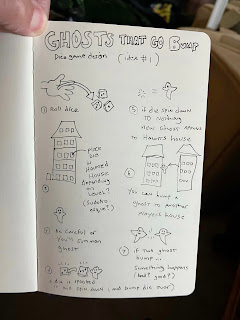 GHOSTS THAT GO BUMP
Dice game design (idea #1)
① roll dice
② place
die
in
Haunted
House
depending
on
Level?
(Sudoku
esque?)
③ Be careful or
you'll summon
ghost
④
die spins down, and bump die over)
⑤ if die spin down
to nothing
new Ghost appears
in Haunted house
⑥
You can bump a
ghost to another
Players house
⑦ if two ghost
bump...
Something happens
(bad? good?)